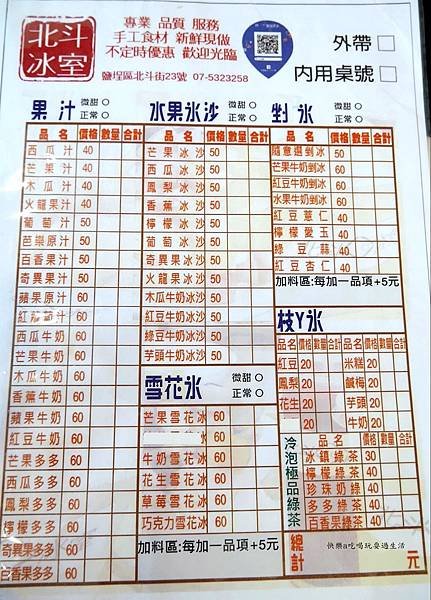 北斗
冰室
專業 品質 服務
手工食材 新鮮現做
不定時優惠 歡迎光臨
鹽埕區北斗街23號 07-5323258
外帶
內用桌號
果汁 微甜 正常
品名 價格 數量 合計
西瓜汁 40
芒果汁 40
木瓜汁 40
火龍果汁 40
葡萄汁 50
芭樂原汁 50
百香果汁 50
奇異果汁 50
蘋果原汁 60
紅蘿蔔汁 60
西瓜牛奶 60
芒果牛奶 60
木瓜牛奶 60
香蕉牛奶 60
蘋果牛奶 60
紅豆牛奶 60
芒果多多 60
西瓜多多 60
鳳梨多多 60
檸檬多多 60
奇異果多多 60
百香果多多 60
水果冰沙 微甜 正常
品名 價格 數量 合計
芒果冰沙 50
西瓜冰沙 50
鳳梨冰沙 50
香蕉冰沙 50
檸檬冰沙 50
葡萄冰沙 50
奇異果冰沙 50
火龍果冰沙 50
木瓜牛奶冰沙 50
紅豆牛奶冰沙 50
綠豆牛奶冰沙 50
芋頭牛奶冰沙 50
雪花冰 微甜 正常
芒果雪花冰 60
60
牛奶雪花冰 60
花生雪花冰 60
草莓雪花冰 60
巧克力雪花冰 60
加料區:每加一品項+5元
剉冰
品名 價格 數量 合計
隨意選剉冰 50
芒果牛奶剉冰 60
紅豆牛奶剉冰 60
水果牛奶剉冰 60
紅豆薏仁 40
檸檬愛玉 40
綠豆蒜 40
紅豆杏仁 40
加料區:每加一品項+5元
枝Y冰
品名 價格 合計 品名 價格 合計
紅豆 20 米糕 20
鳳梨 20 鹹梅 20
花生 20 芋頭 20
牛奶 20
冷泡極品綠茶
品名 價格 數量 合計
冰鎮綠茶 30
檸檬綠茶 40
珍珠奶綠 40
多多綠茶 40
百香果綠 40
總計 元
快樂a吃喝玩耍過生活